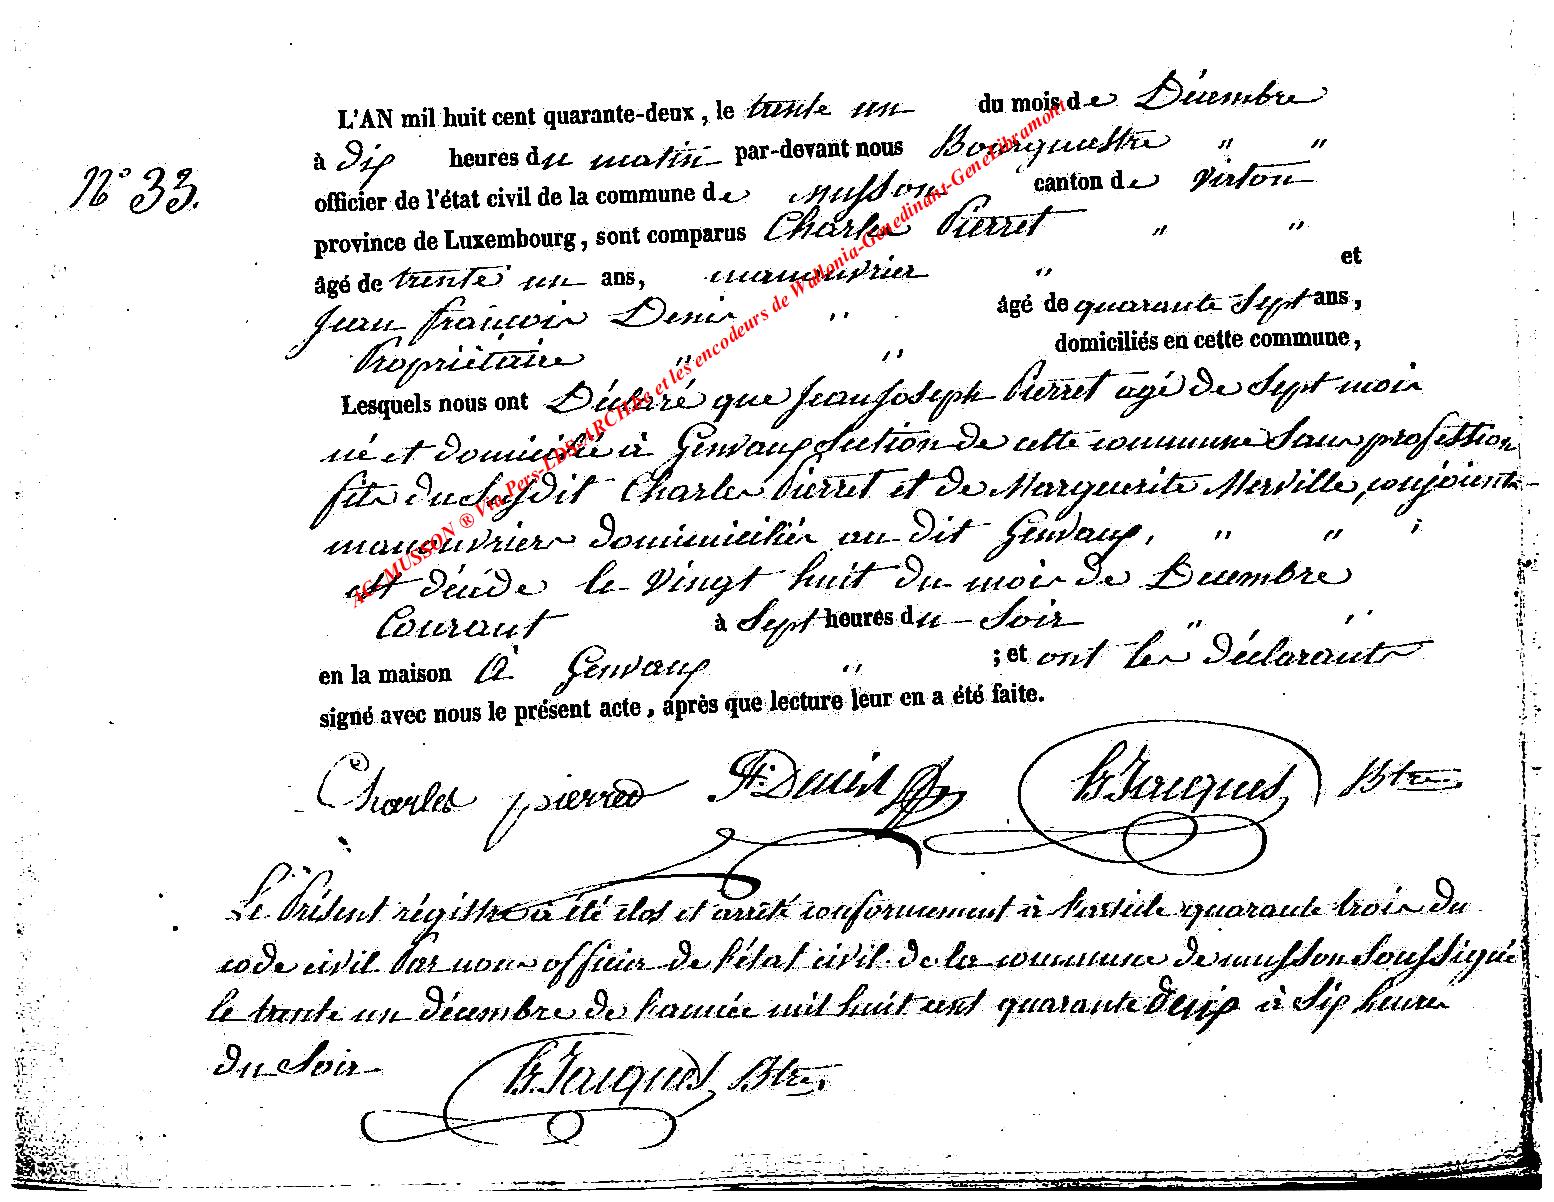 L'AN mil huit cent quarante-deux, le trente un du mois de Décembre
à dix heures du matin par-devant nous Bourguestre " "
N° 33.
officier de l'état civil de la commune de Musson canton de Virton
province de Luxembourg, sont comparus Charles Pierret " "
âgé de trente un ans, manouvrier " et
Jean françois Denis " âgé de quarante Sept ans,
Propriétaire " " domiciliés en cette commune,
Lesquels nous ont Déclaré que Jean Joseph Pierret agé de Sept mois
né et domicilié à Genvaux Section de cette commune Sans profession
fils du Susdit Charles Pierret et de Marguerite Merville, conjoints
manouvriers domimiciliés au dit Genvaux, " " "
est décédé le vingt huit du mois de Décembre
Courant à Sept heures du Soir " "
en la maison à Genvaux " ; et ont les déclarants
signé avec nous le présent acte, après que lecture leur en a été faite.
Charles pierred Denis Jacques Btre
Le Présent régistre a été clos et arrêté conformement à l'article quarante trois du
code civil Par nous officier de l'état civil de la commune de musson Soussigné
le trente un décembre de l'année mil huit cent quarante deux à Six heures
du Soir Jacques Btre.
AG-MUSSON ® Via Pers-LDS-ARCHBe et les encodeurs de Wallonia-Genedinant-GeneLibramont